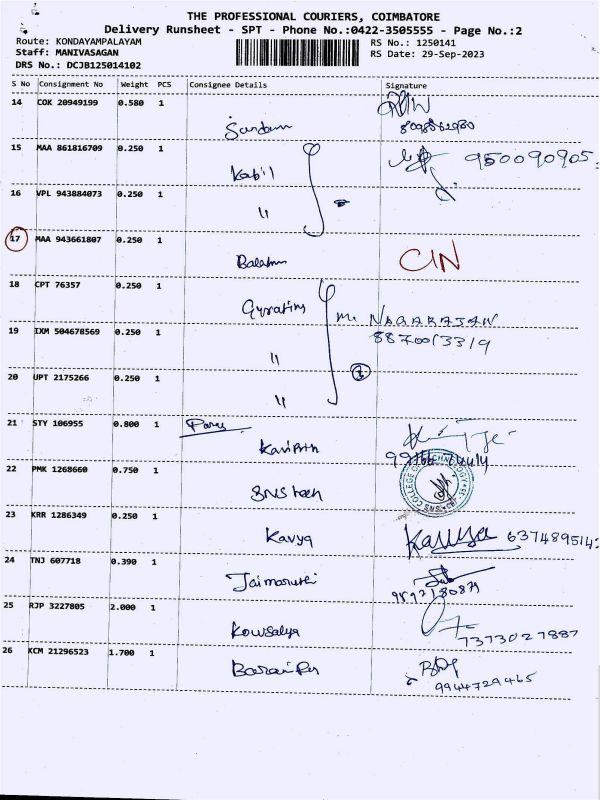 THE PROFESSIONAL COURIERS, COIMBATORE
Delivery Runsheet - SPT - Phone No.:0422-3505555 - Page No.:2
Route: KONDAYAMPALAYAM
RS No.: 1250141
Staff: MANIVASAGAN
RS Date: 29-Sep-2023
DRS No.: DCJB125014102
S No Consignment No Weight PCS Consignee Details Signature
14 COK 20949199 0.580 1
15 MAA 861816709 0.250 1 Kapil 950090905
16 VPL 943884073 0.250 1 "
17 MAA 943661807 0.250 1 CIN
18 CPT 76357 0.250 1
NAGARAJAN
19 IXM 504678569 0.250 1 " 8870013319
20 UPT 2175266 0.250 1 "
21 STY 106955 0.800 1
22 PMK 1268660 0.750 1
SNS COLLEGE OF TECHNOLOGY
23 KRR 1286349 0.250 1 Kavya Kavya
24 TNJ 607718 0.390 1
25 RJP 3227805 2.000 1 Kowsalya 7373027887
26 KCM 21296523 1.700 1
9944729465